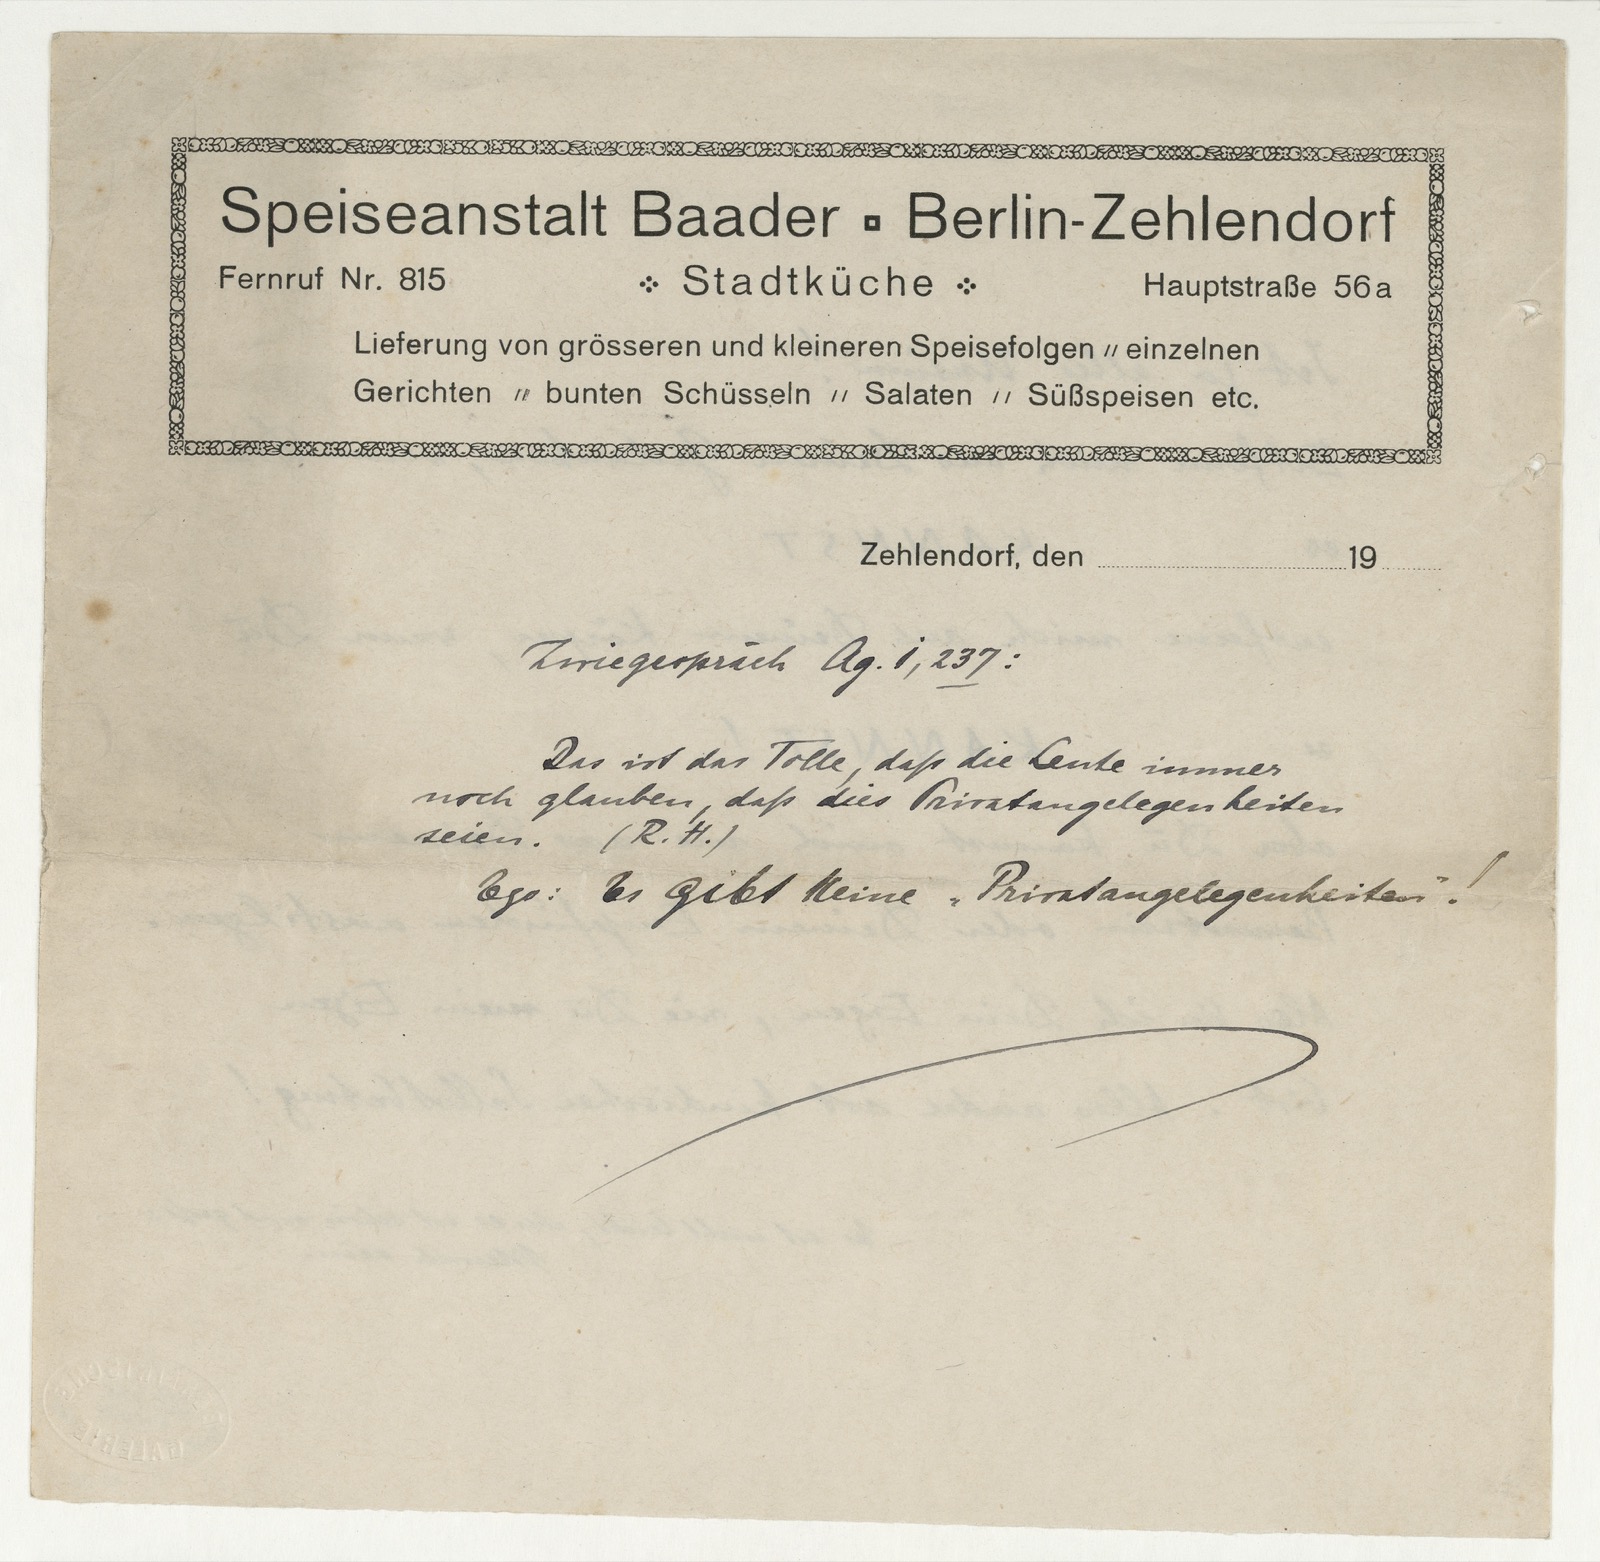 Speiseanstalt Baader ▫ Berlin-Zehlendorf
Fernruf Nr. 815 Stadtküche Hauptstraße 56a
Lieferung von grösseren und kleineren Speisefolgen // einzelnen
Gerichten // bunten Schüsseln // Salaten // Süßspeisen etc.
Zehlendorf, den 19
Zwiegespräch Ag. I, 237:
Das ist das Tolle, daß die Leute immer
noch glauben, daß dies Privatangelegenheiten
seien. (R. H.)
Ego: Es gibt keine „Privatangelegenheiten“!
GALERIE